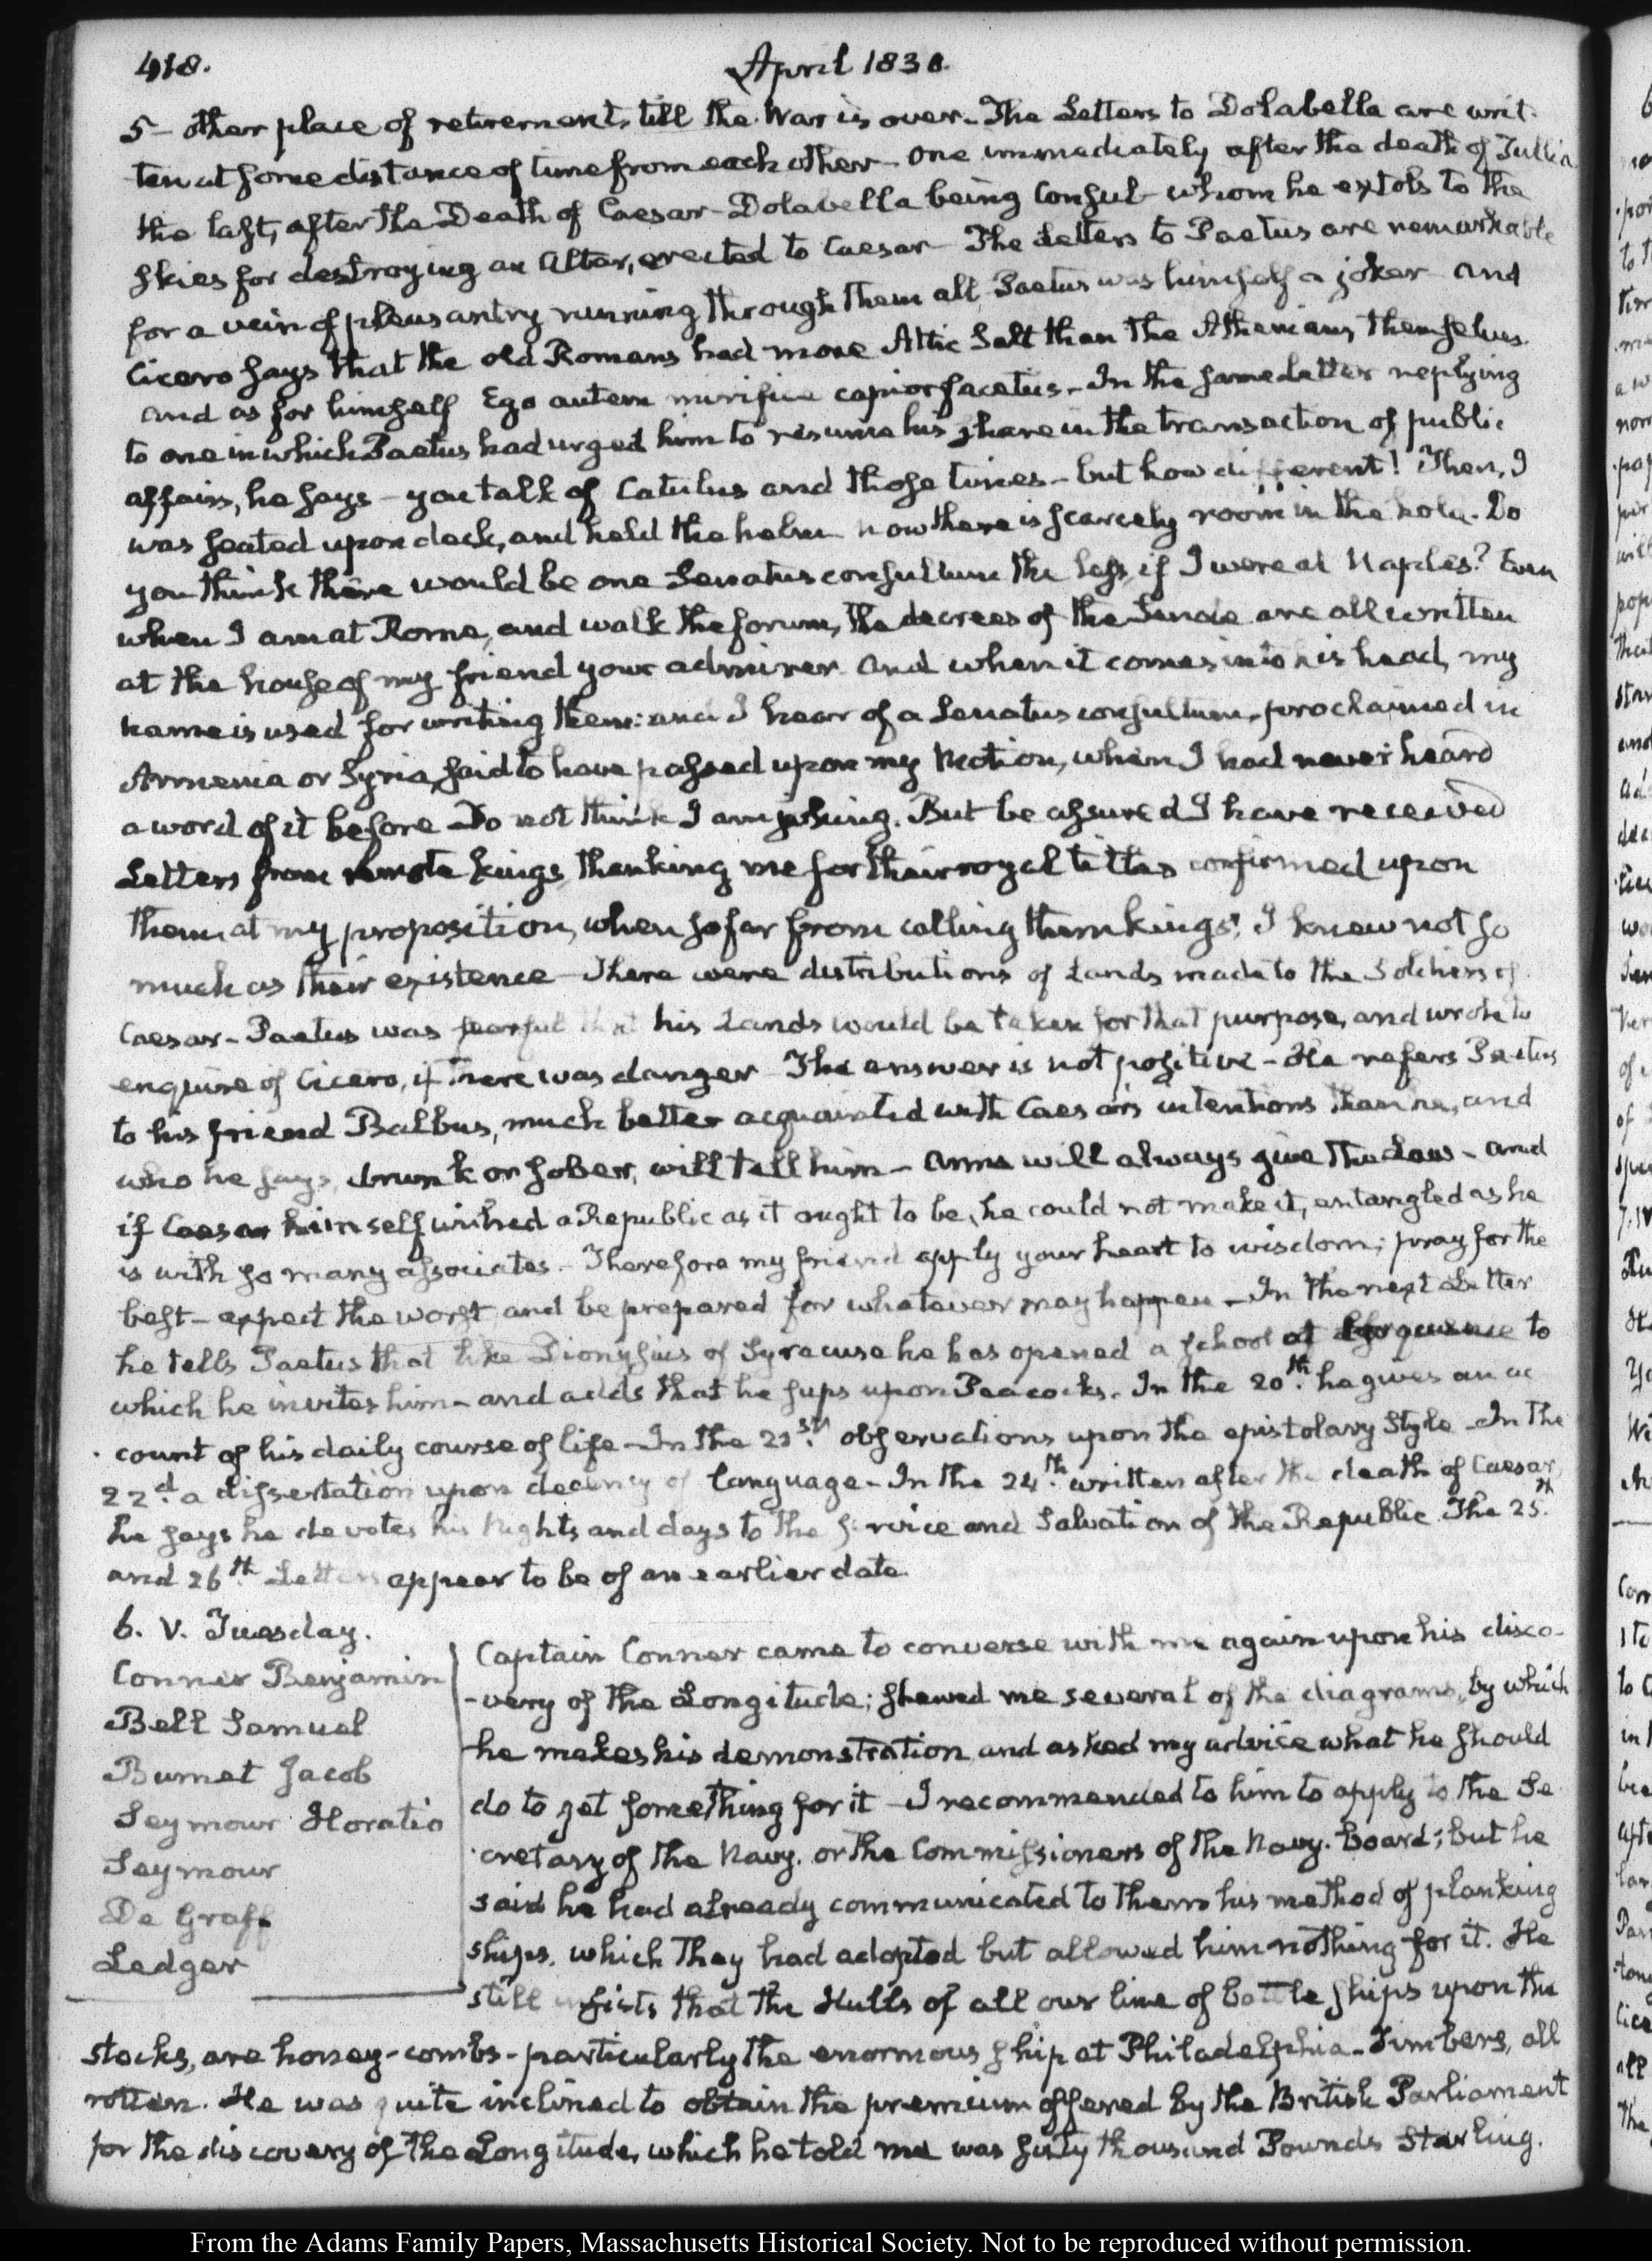 418.
April 1830.
5 – other place of retirement, till the War is over – The Letters to Dolabella are writ-
ten at some distance of time from each other – one immediately after the death of Tullia
the last, after the Death of Caesar – Dolabella being Consul – whom he extols to the
skies for destroying an Altar, erected to Caesar – The Letters to Paetus are remarkable
for a vein of pleasantry running through them all. Paetus was himself a joker and
Cicero says that the old Romans had more Attic Salt than the Athenians themselves.
and as for himself Ego autem mirifice capior facetiis – In the same Letter replying
to one in which Paetus had urged him to resume his share in the transaction of public
affairs, he says – you talk of Catulus and those times – but how different! Then, I
was seated upon deck, and held the helm now there is scarcely room in the hold. Do
you think there would be one Senatus consultum the less, if I were at Naples? Even
when I am at Rome, and walk the forum, the decrees of the Senate are all written
at the house of my friend your admirer and when it comes into his head, my
name is used for writing them: and I hear of a Senatus consultum, proclaimed in
Armenia or Syria, said to have passed upon my Motion, when I had never heard
a word of it before – Do not think I am joking. But be assured I have received
Letters from remote kings, thanking me for their royal titles confirmed upon
them, at my proposition, when so far from calling them kings, I knew not so
much as their existence – There were distributions of Lands made to the Soldiers of
Caesar – Paetus was fearful that his Lands would be taken for that purpose, and wrote to
enquire of Cicero, if there was danger – The answer is not positive – He refers Paetus
to his friend Balbus, much better acquainted with Caesar's intentions than he, and
who he says, drunk or sober, will tell him – Arms will always give the Law – and
if Caesar himself wished a Republic as it ought to be, he could not make it, entangled as he
is with so many associates – Therefore my friend apply your heart to wisdom; pray for the
best – expect the worst, and be prepared for whatever may happen – In the next Letter
he tells Paetus that like Dionysius of Syracuse he has opened a school at to
which he invites him – and adds that he sups upon Peacocks. In the 20th. he gives an ac
count of his daily course of life – In the 21st. observations upon the epistolary Style – In the
22d. a dissertation upon decency of language – In the 24th. written after the death of Caesar,
he says he devotes his Nights and days to the service and Salvation of the Republic. The 25th.
and 26th. Letters appear to be of an earlier date.
6. V. Tuesday.
Conner Benjamin
Bell Samuel
Burnet Jacob
Seymour Horatio
Seymour
De Graff
Ledger
Captain Conner came to converse with me again upon his disco-
-very of the Longitude; shewed me several of the diagrams, by which
he makes his demonstration and asked my advice what he should
do to get something for it – I recommended to him to apply to the Se
cretary of the Navy. or the Commissioners of the Navy. Board; but he
said he had already communicated to them his method of planking
ships, which they had adopted but allowed him nothing for it. He
still insists that the Hulls of all our line of battle ships upon the
stocks, are honey-combs – particularly the enormous ship at Philadelphia – Timbers, all
rotten. He was quite inclined to obtain the premium offered by the British Parliament
for the discovery of the Longitude, which he told me was sixty thousand Pounds Sterling.
From the Adams Family Papers, Massachusetts Historical Society. Not to be reproduced without permission.